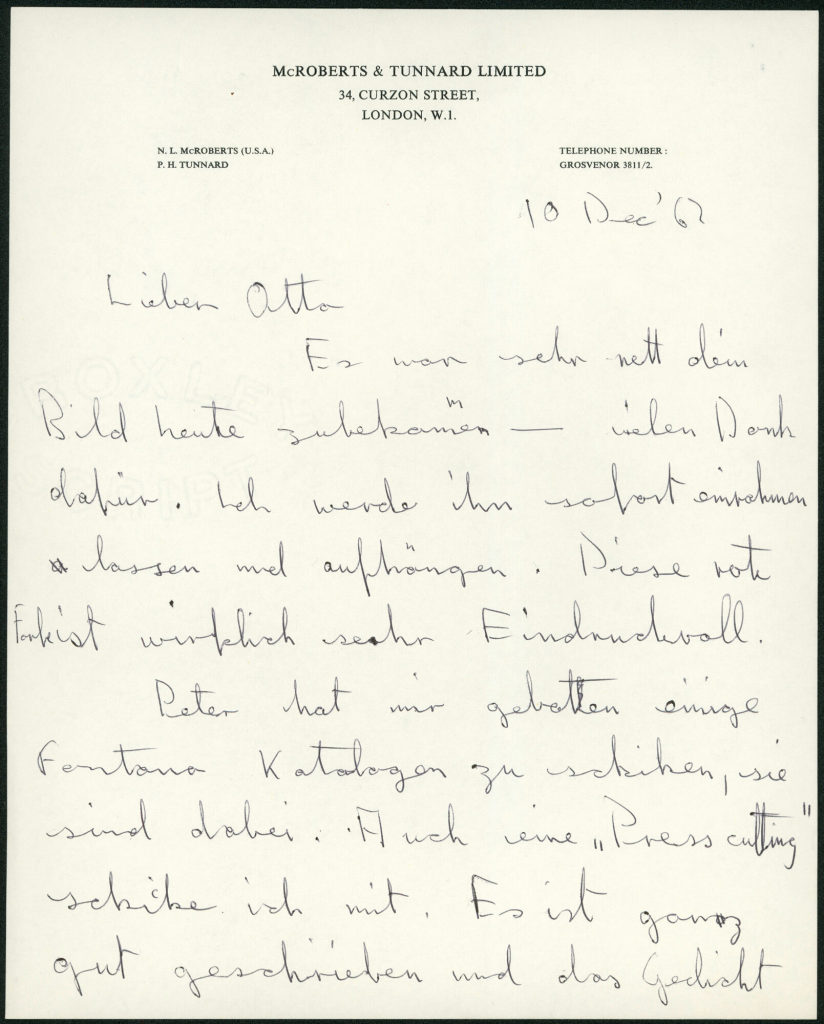 McROBERTS & TUNNARD LIMITED
34, CURZON STREET,
LONDON, W.1.
N. L. McROBERTS (U.S.A.)
P. H. TUNNARD
TELEPHONE NUMBER :
GROSVENOR 3811/2.
10 Dec' 62
Lieber Otto
Es war sehr nett dein
Bild heute zubekommen — vielen Dank
dafür. Ich werde ihn sofort einrahmen
lassen und aufhängen. Diese rote
ist wirklich sehr Eindruckvoll.
Peter hat mir gebetten einige
Fontana Katalogen zu schiken, sie
sind dabei. Auch eine „Press cutting"
schike ich mit. Es ist ganz
gut geschrieben und das Gedicht